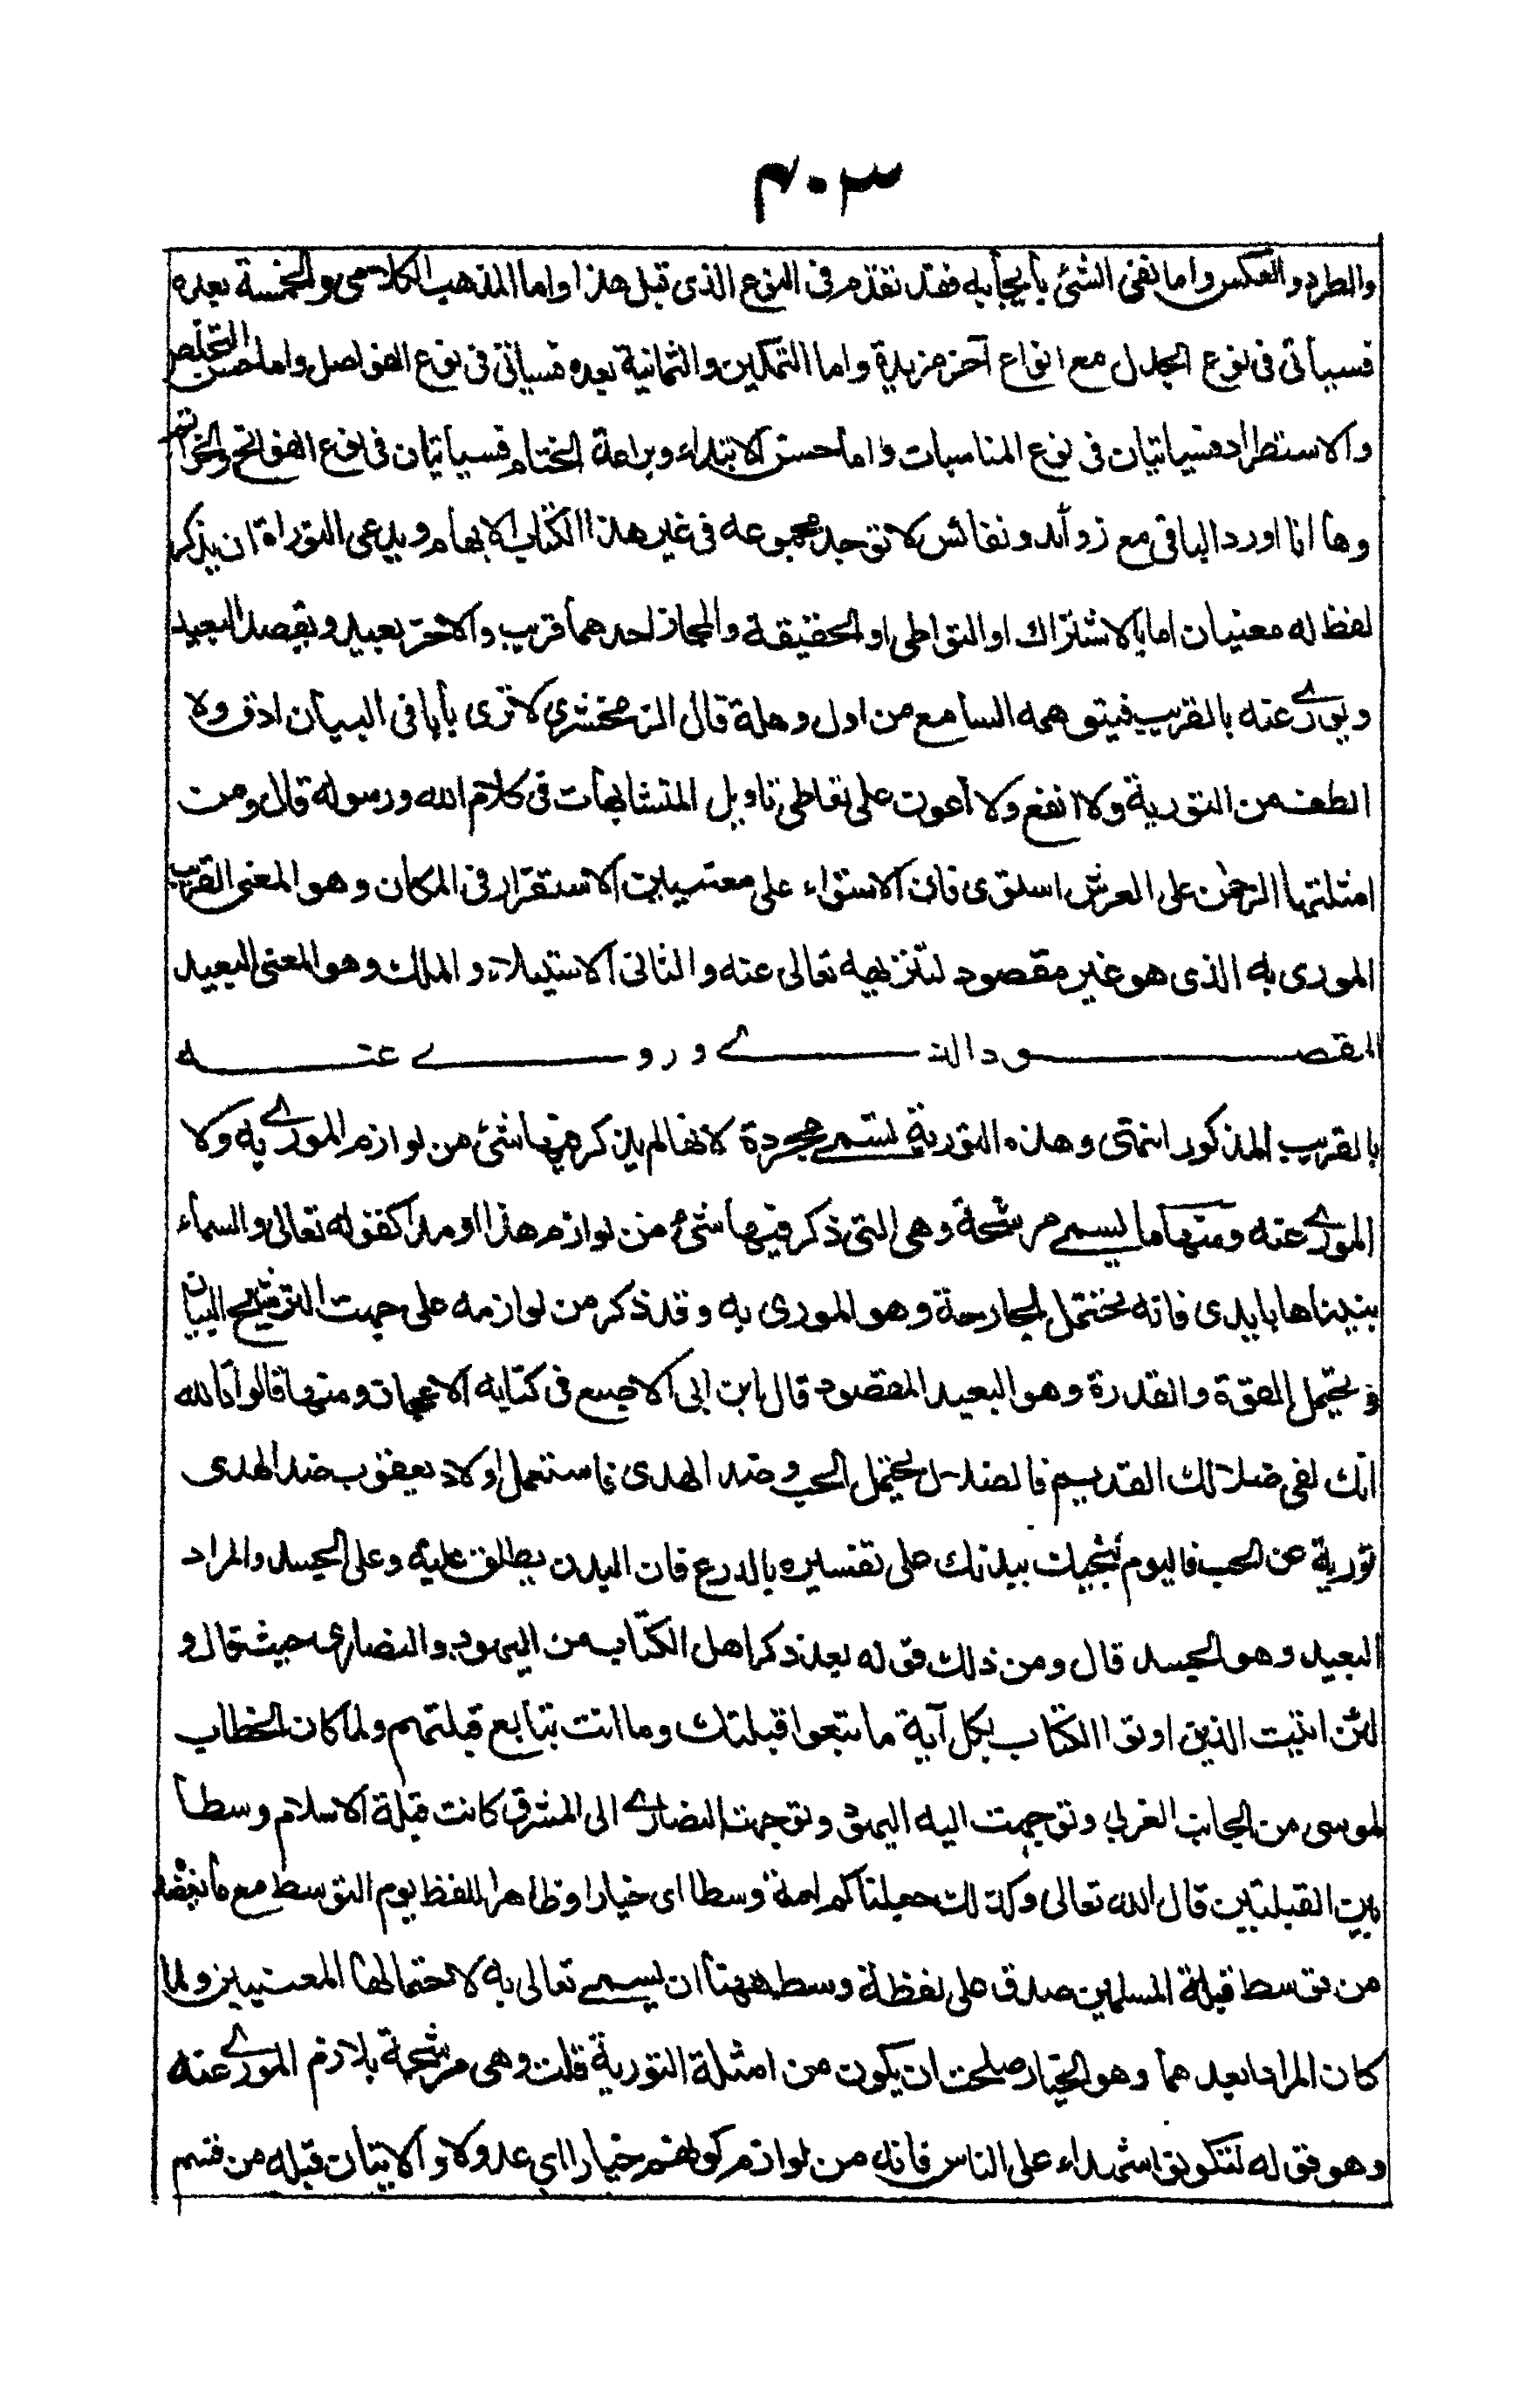 ٤٠٣
والطرد والعكس واما نفى الشئ بايجابه فقد تقدم فى النوع الذى قبل هذا واما المذهب الكلامى والخمسة بعده
فسيأتى فى نوع الجدل مع انواع آخر مزيدة واما التمكين والثمانية بعده فسيأتى فى نوع الفواصل واما حسن التخلص
والاستطراد فسيأتيان فى نوع المناسبات واما حسن الابتداء وبراعة الختام فسيأتيان فى نوع الفواتح والخواتم
وها انا اورد الباقى مع زوائد ونفائس لا توجد مجموعه فى غير هذا الكتاب الايهام ويدعى التوراة ان يذكر
لفظ له معنيان اما بالاشتراك او التواطى او الحقيقة والمجاز احدهما قريب والاخر بعيد ويقصد البعيد
ويورے عنه بالقريب فيتوهمه السامع من اول وهلة قال الزمخشري لا ترى بابا فى البيان ادق ولا
الطف من التورية ولا انفع ولا أعون على تعاطى تاويل المتشابهات فى كلام الله ورسوله قال ومن
امثلتها الرحمن على العرش استوى فان الاستواء على معنيين الاستقرار فى المكان وهو المعنى القريب
المورى به الذى هو غير مقصود لتنزيهه تعالى عنه والثانى الاستيلاء والملك وهو المعنى البعيد
المقصود الذے ورے عنه
بالقريب المذكور انتهى وهذه التورية تسمے مجردة لانها لم يذكر فيها شئ من لوازم المورے به ولا
المورے عنه ومنها ما يسمے مرشحة وهى التى ذكر فيها شئ من لوازم هذا او هذا كقوله تعالى والسماء
بنيناها بايدى فانه يحتمل الجارحة وهو المورى به وقد ذكر من لوازمه على جهت الترشيح البنيان
و يحتمل القوة والقدرة وهو البعيد المقصود قال ابن ابى الاصبع فى كتابه الاعجاز ومنها قالوا تالله
انك لفى ضلالك القديم فالضلال يحتمل الحب وضد الهدى فاستعمل اولاد يعقوب ضد الهدى
تورية عن الحب فاليوم ننجيك ببدنك على تفسيره بالدرع فان البدن يطلق عليه وعلى الجسد والمراد
البعيد وهو الجسد قال ومن ذلك قوله بعد ذكر اهل الكتاب من اليهود والنصارى حيث قال و
لئن اتيت الذين اوتوا الكتاب بكل آية ما تبعوا قبلتك وما انت بتابع قبلتهم ولما كان الخطاب
لموسى من الجانب الغربي وتوجهت اليه اليهود وتوجهت النصارے الى المشرق كانت قبلة الاسلام وسطا
بين القبلتين قال الله تعالى وكذلك جعلناكم امة وسطا اى خيارا وظاهر اللفظ يوهم التوسط مع ما يعضد
من توسط قبلة المسلمين صدق على لفظة وسط ههنا ان يسمے تعالى به لاحتمالها المعنيين ولما
كان المراد ابعدهما وهو الخيار صلحت ان يكون من امثلة التورية قلت وهى مرشحة بلازم المورے عنه
وهو قوله لتكونوا شهداء على الناس فانه من لوازم كونهم خيارا اي عدولا والايتان قبله من قسم